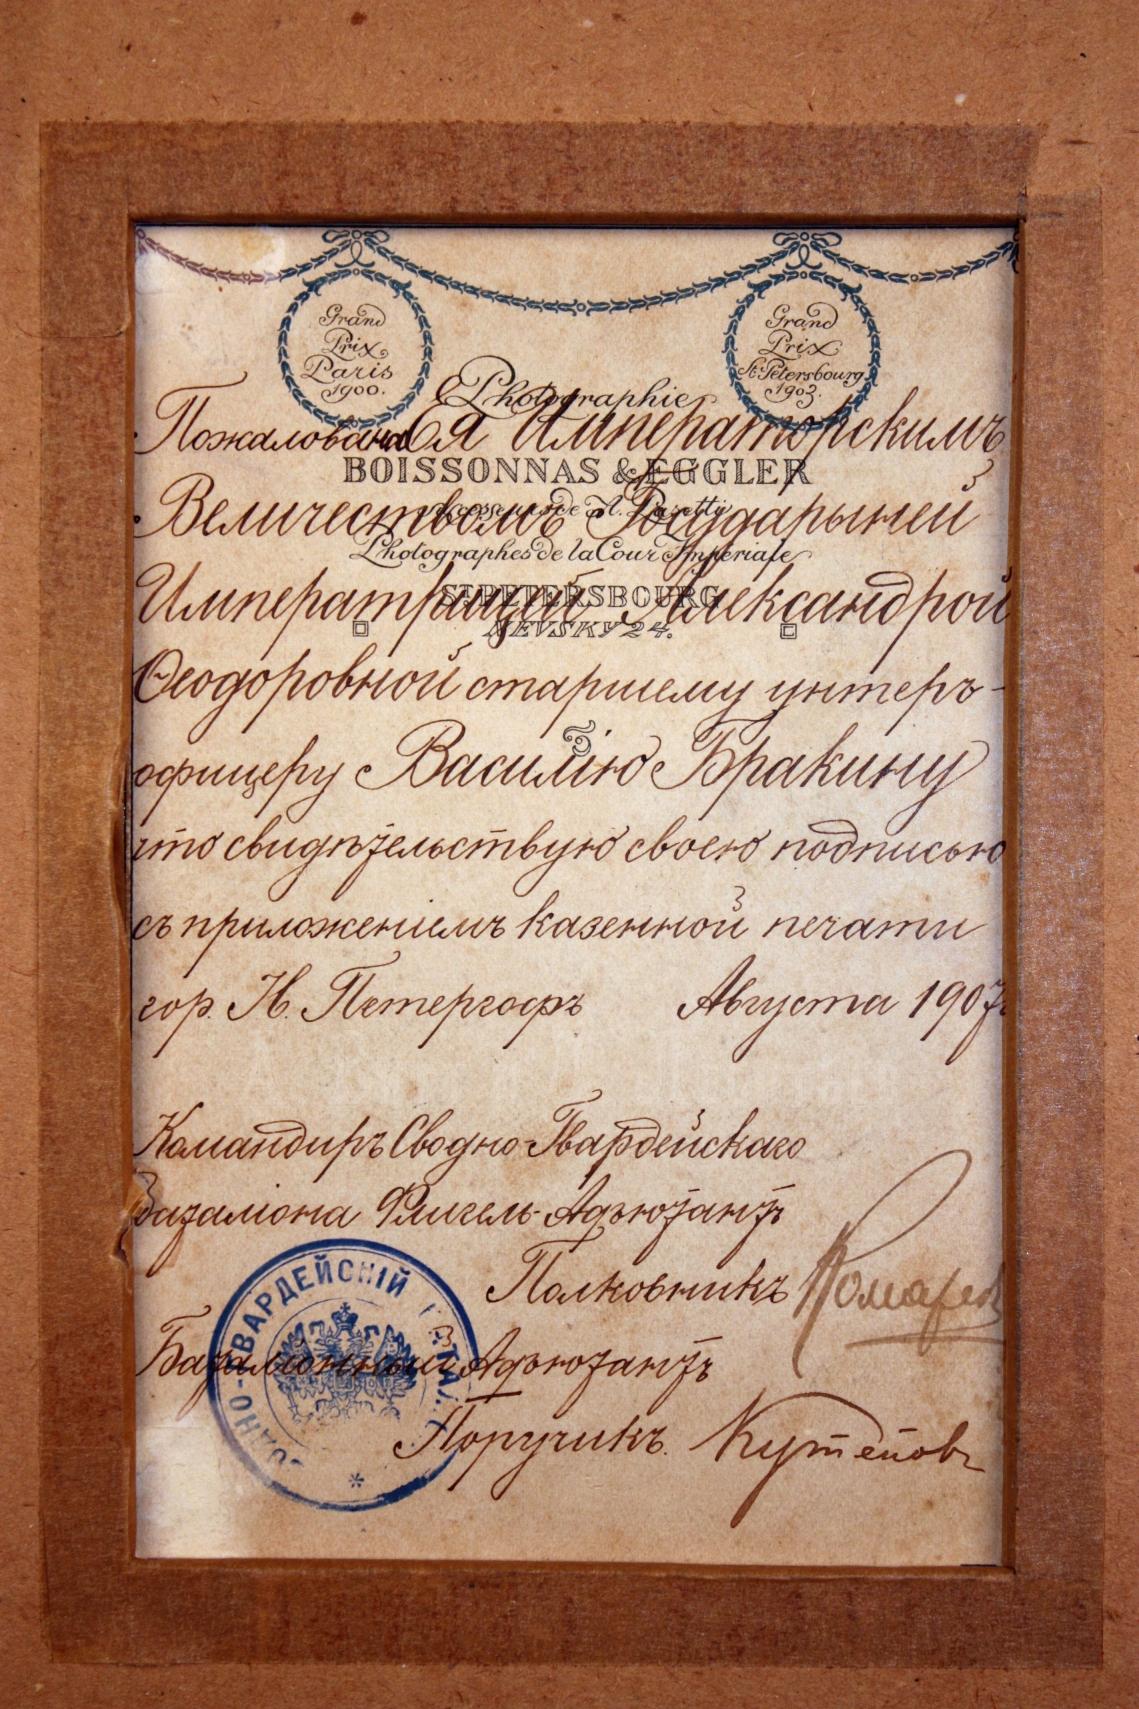 Grand
Prix
Paris
1900.
Grand
Prix
St. Petersbourg
1903.
Photographie
Пожалована Ея Императорскимъ
BOISSONNAS & EGGLER
Величествомъ Государыней
Photographes de la Cour Imperiale
Императрицей Александрой
ST. PETERSBOURG
NEVSKY 24.
Ѳеодоровной старшему унтеръ-
офицеру Василію Бракину
что свидѣтельствую своею подписью
съ приложеніемъ казенной печати
гор. Н. Петергофъ Августа 1907г
Командиръ Сводно-Гвардейскаго
Баталіона Флигель-Адъютантъ
Полковникъ Комаровъ
Баталіонный Адъютантъ
Поручикъ. Кутеповъ
ГВАРДЕЙСКІЙ